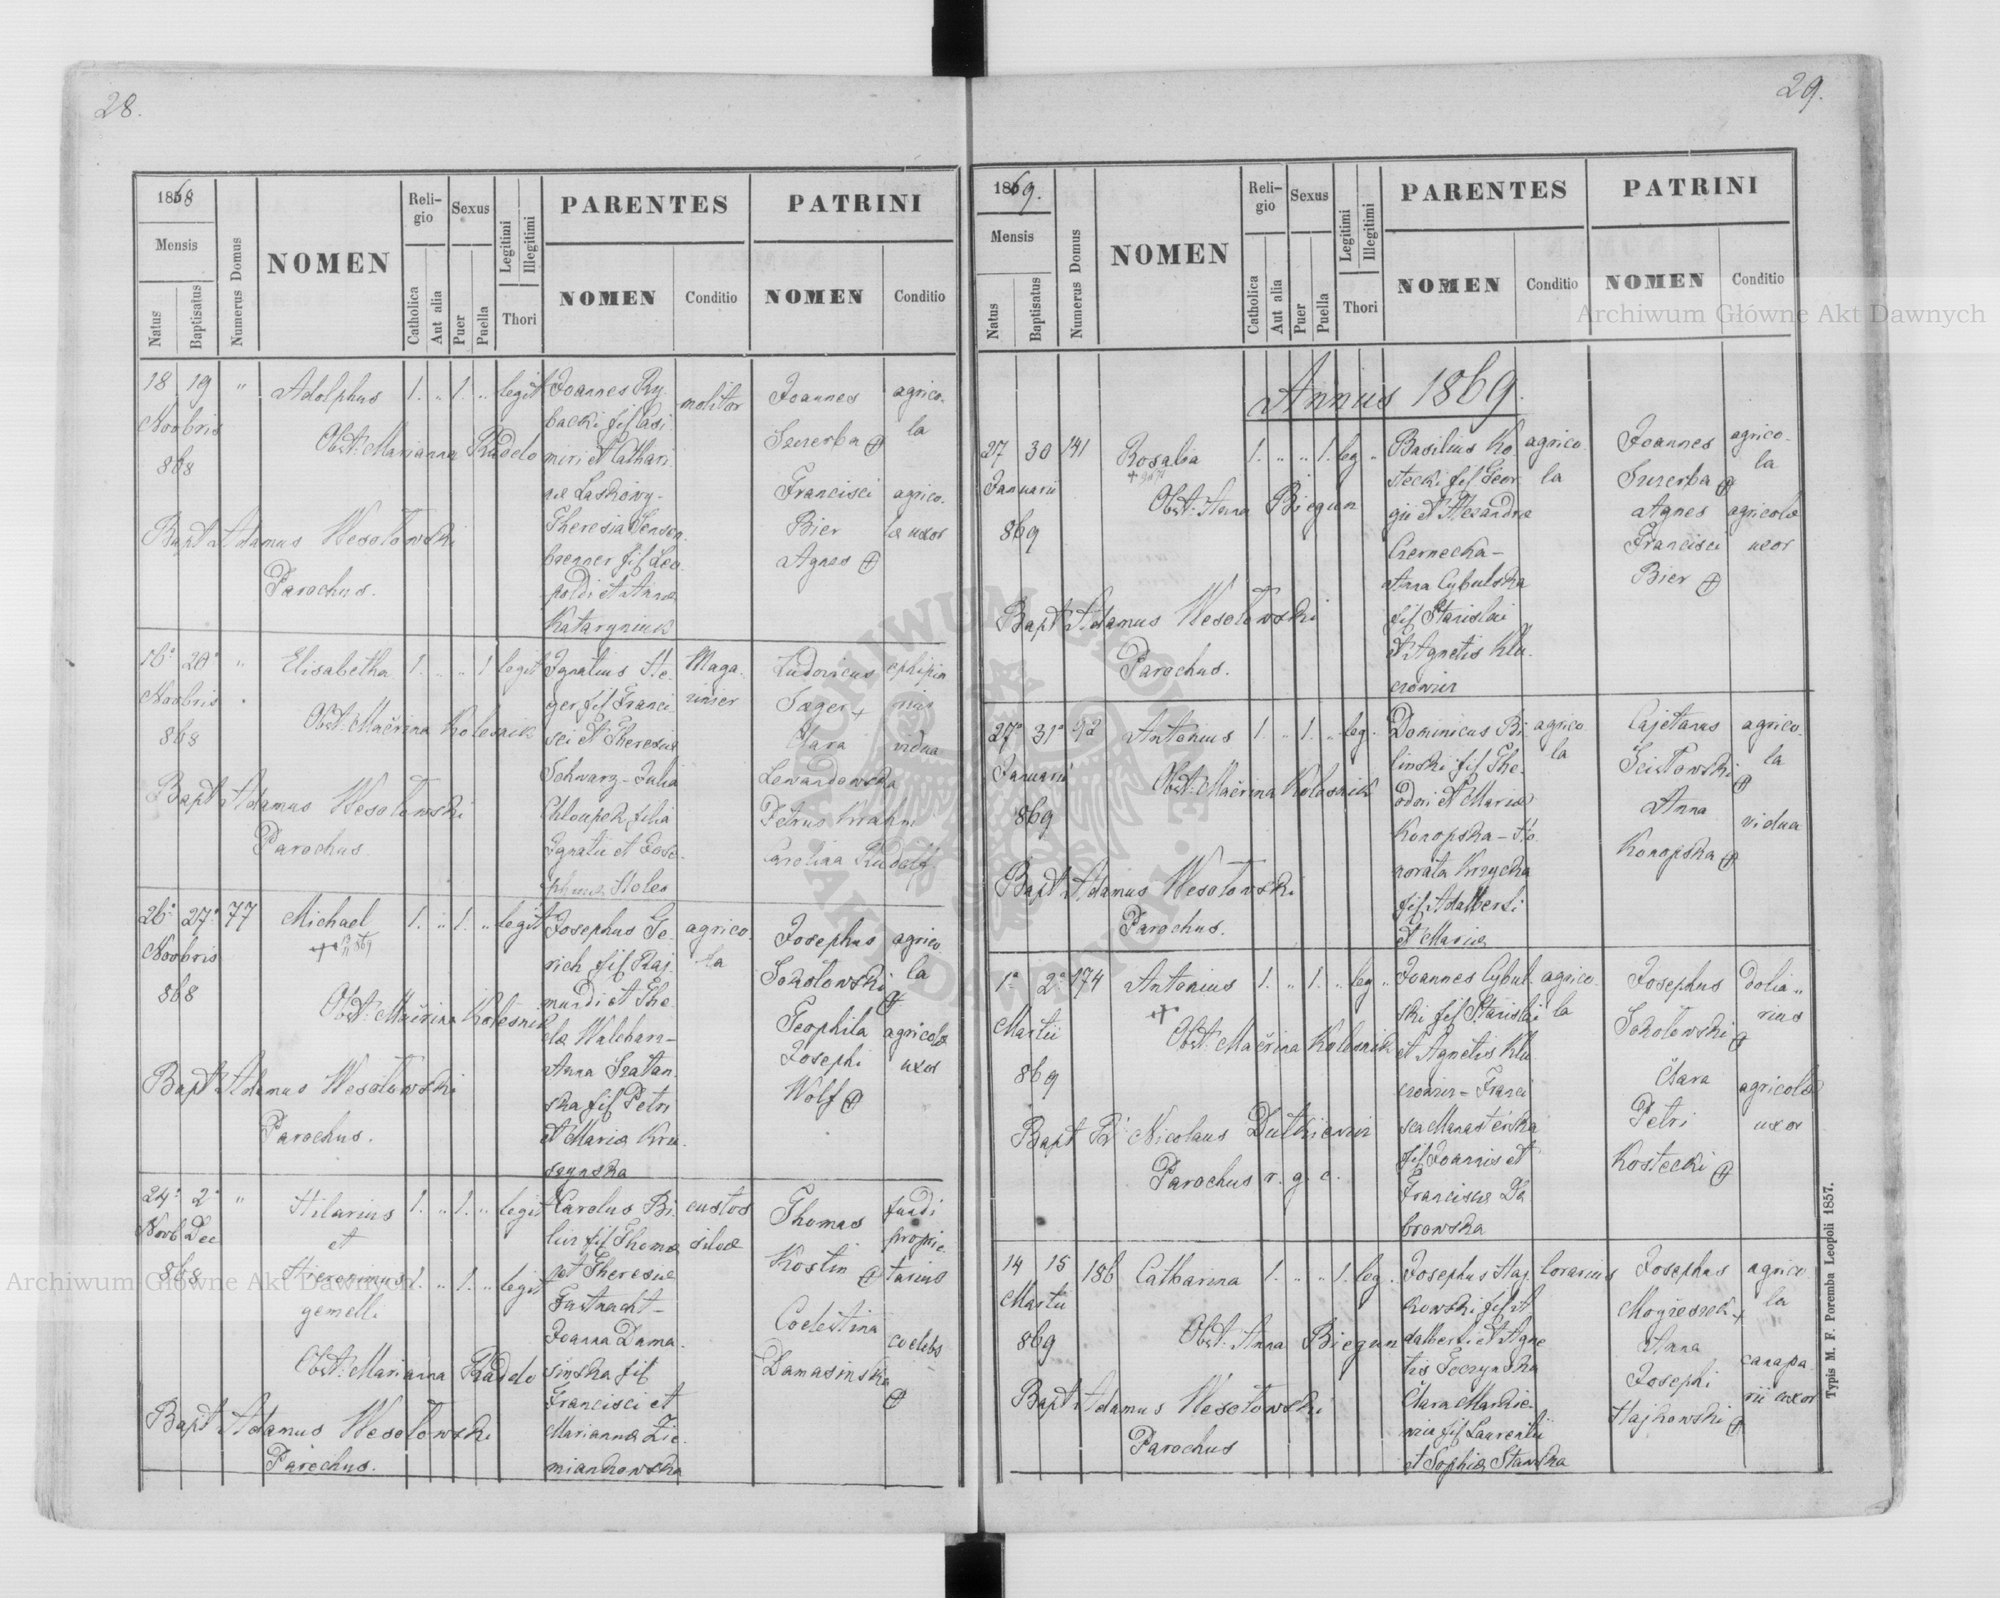 28.
1868
Mensis
Natus
Baptisatus
Numerus Domus
NOMEN
Reli-
gio
Catholica
Aut alia
Sexus
Puer
Puella
Legitimi
Illegitimi
Thori
PARENTES
NOMEN
Conditio
PATRINI
NOMEN
Conditio
18 19 " Adolphus 1. " 1. " legit
Novbris
868
Obst. Marianna Radelo
Bapt Adamus Wesołowski
Parochus.
Joannes Ry
backi fil Casi
miri et Cathari
næ Laskowy-
Theresia
brenner fil Leo
poldi et Annæ
molitor
Joannes
Szczerba
Francisci
Bier
Agnes
agrico-
la
agrico-
læ uxor
16 20 " Elisabetha 1. " " 1 legit
Novbris
868
Obst. Maćrina Kolesnik
Bapt Adamus Wesołowski
Parochus
Ignatius He-
ger fil Franci
sci et Theresiæ
Schwarz - Julia
Chloupek filia
Ignatii et Jose-
phinæ
Maga-
zinier
Ludovicus
Jaeger +
Clara
Lewandowska
Petrus
Carolina Rudolf
vidua
26 27 77 Michael 1. " 1. " legit
Novbris
868
Obst. Maćrina Kolesnik
Bapt Adamus Wesołowski
Parochus.
Josephus Ge-
rich fil Raj
mundi et The
clæ Walchan-
Anna
ska fil Petri
et Mariæ Kru
szynska
agrico-
la
Josephus
Sokołowski
Teophila
Josephi
Wolf
agrico
la
agricolæ
uxor
24 2 " Hilarius 1. " 1. " legit
Novb Dec et
868 Hieronimus 1. " 1. " legit
gemelli
Obst. Marianna Radelo
Bapt Adamus Wesołowski
Parochus.
Carolus Bi-
fil Thomæ
et Theresiæ
Fastnacht-
Joanna Dama-
sinska fil
Francisci et
Mariannæ Zie-
miankowska
custos
silvæ
Thomas
Kostin
Coelestina
Damasinska
fundi
proprie-
tarius
coelebs
29.
1869.
Mensis
Natus
Baptisatus
Numerus Domus
NOMEN
Reli-
gio
Catholica
Aut alia
Sexus
Puer
Puella
Legitimi
Illegitimi
Thori
PARENTES
NOMEN
Conditio
PATRINI
NOMEN
Conditio
Annus 1869.
27 30 141 Rosalia 1. " " 1. leg "
Januarii
869
Obst. Anna Biegun
Bapt Adamus Wesołowski
Parochus.
Basilius Ko-
stecki fil Geor
gii et Alexandræ
Czernecka-
Anna Cybulska
fil Stanislai
et Agnetis Klu-
czowicz
agrico
la
Joannes
Szczerba
Agnes
Francisci
Bier
agrico-
la
agricolæ
uxor
27 31 92 Antonius 1. " 1. " leg.
Januarii
869
Obst. Maćrina Kolesnik
Bapt Adamus Wesołowski
Parochus.
Dominicus Bi-
linski fil The-
odori et Mariæ
Konopska - Ho-
norata Krzycka
fil Adalberti
et Mariæ
agrico
la
Cajetanus
Scisłowski
Anna
Konopska
agrico-
la
vidua
1 2 174 Antonius 1. " 1. " leg "
Martii
869
Obst. Maćrina Kolesnik
Bapt R. Nicolaus Dutkiewicz
Parochus r. g. c.
Joannes Cybul-
ski fil Stanislai
et Agnetis Klu-
czowicz - Franci
sca Manasterska
fil Joannis et
Franciscæ Da
browska
agrico-
la
Josephus
Sokołowski
Clara
Petri
Kostecki
dolia-
rius
agricolæ
uxor
14 15 186 Catharina 1. " " 1. leg.
Martii
869
Obst. Anna Biegun
Bapt Adamus Wesołowski
Parochus
Josephus Haj-
kowski fil A
dalberti et Agne
tis Toczynska
Clara Markie-
wicz fil Laurentii
et Sophiæ Stawska
lorarius
Josephus
+
Anna
Josephi
Hajkowski
agrico
la
canapa-
rii uxor
Typis M. F. Poremba Leopoli 1857.
Archiwum Główne Akt Dawnych
Archiwum Główne Akt Dawnych
ARCHIWUM GŁÓWNE
AKT DAWNYCH